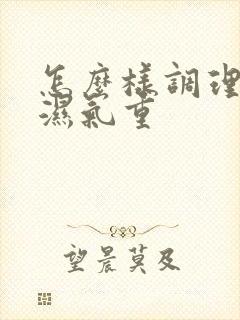 怎麼樣調理
濕氣重
望晨莫及